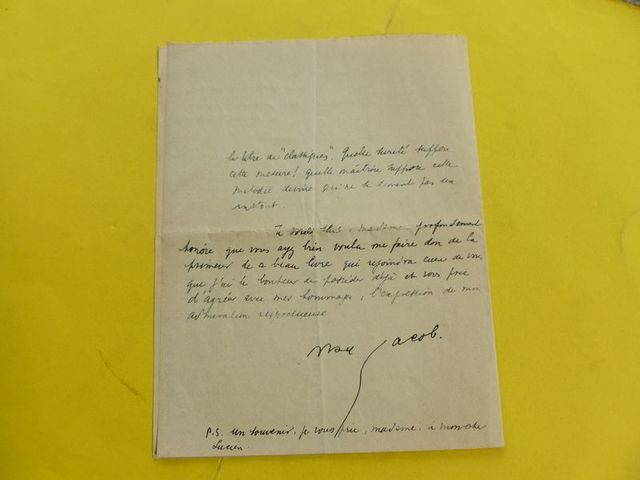 le titre de "classiques". Quelle sureté suppose
cette mesure! quelle maîtrise suppose cette
mélodie divine qui ne se dément pas un
instant.
Je vous suis, madame, profondément
honoré que vous ayez bien voulu me faire don de la
primeur de ce beau livre qui rejoindra ceux de vous
que j'ai le bonheur de posséder déjà et vous prie
d'agréer avec mes hommages, l'expression de mon
admiration respectueuse
Max Jacob.
P.S. un souvenir, je vous prie, madame, à mon cher
Lucien.